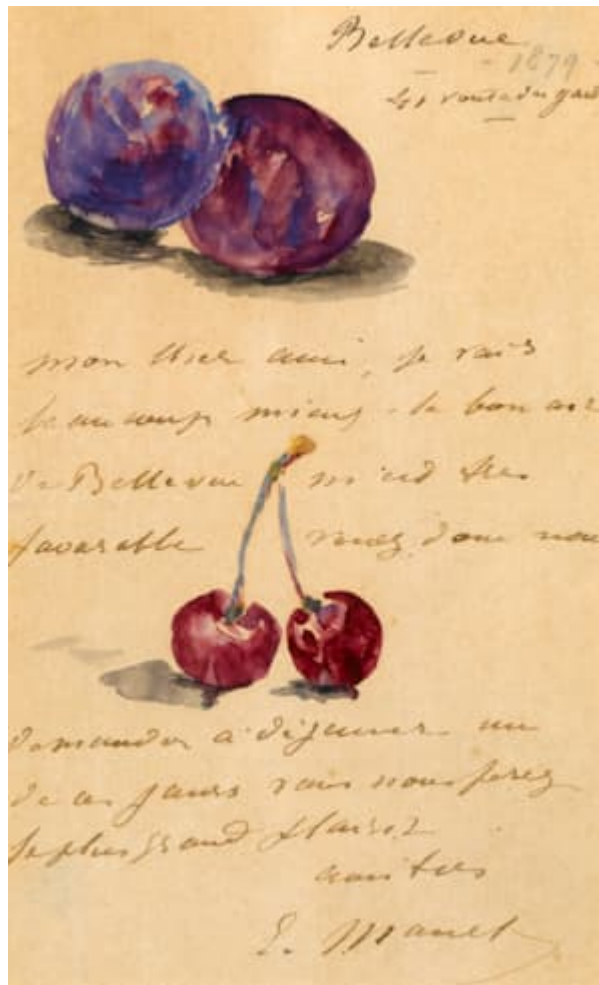 Bellevue
1879
41 route du gard
mon cher ami, je vais
beaucoup mieux - le bon air
de Bellevue m'est très
favorable venez donc nous
demander à déjeuner un
de ces jours vous nous ferez
le plus grand plaisir
amitiés
E. Manet